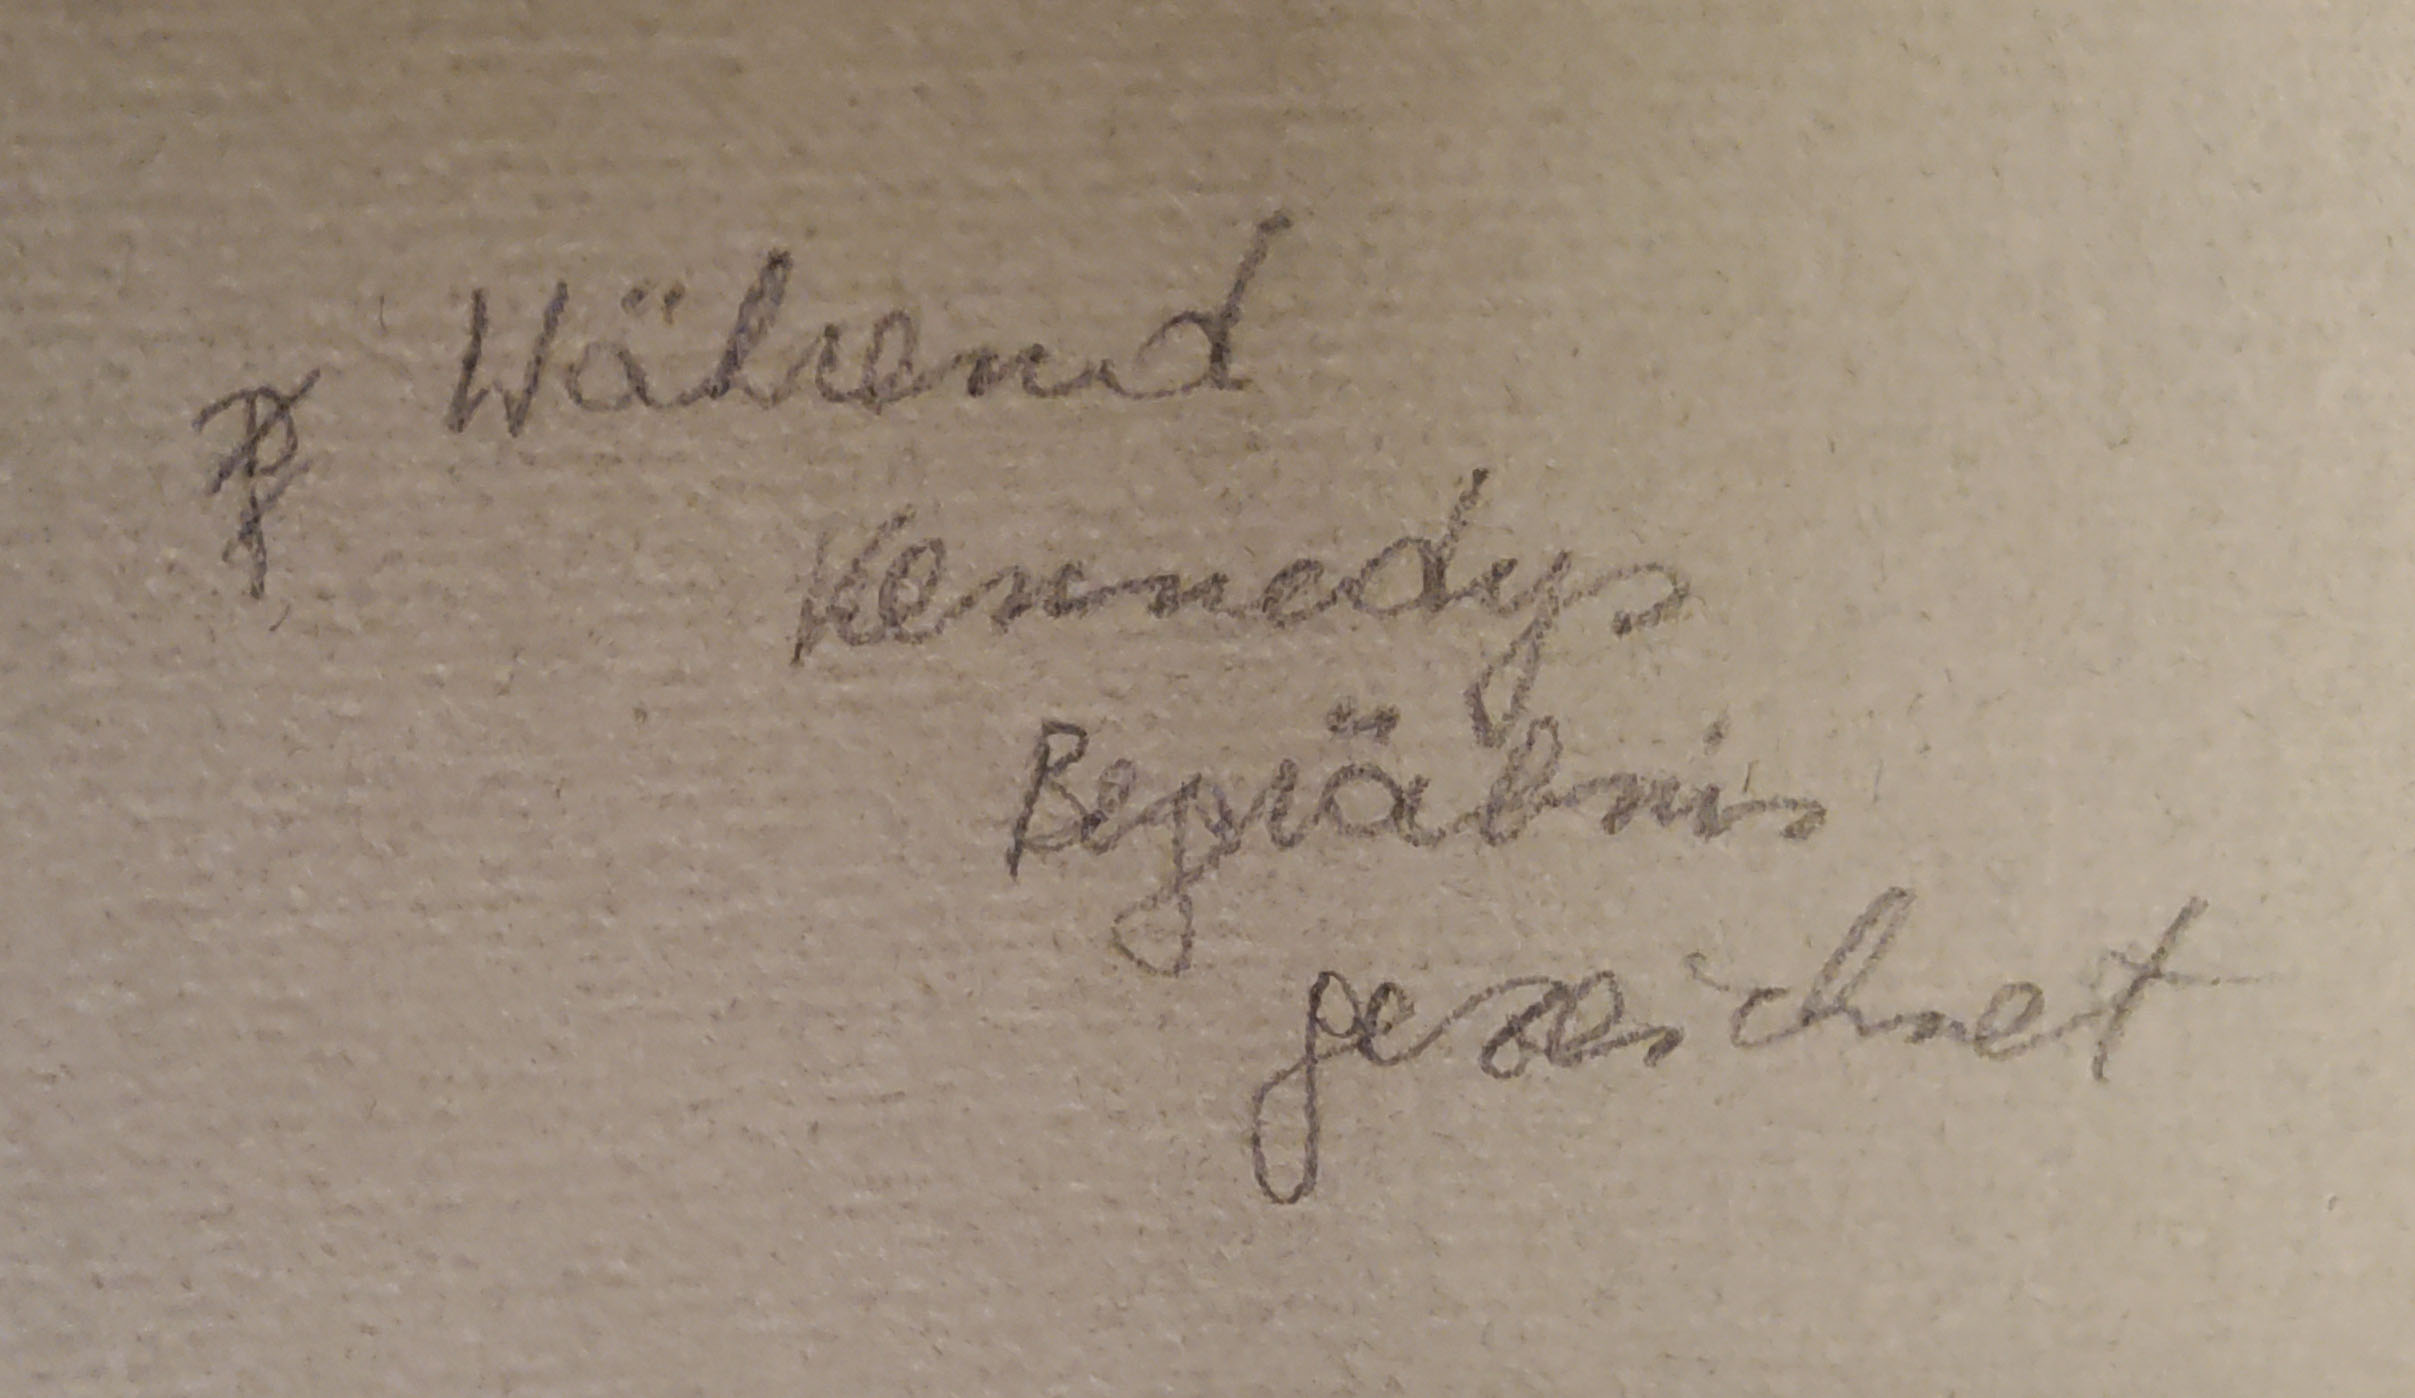 Während
Kennedys
Begräbnis
gezeichnet